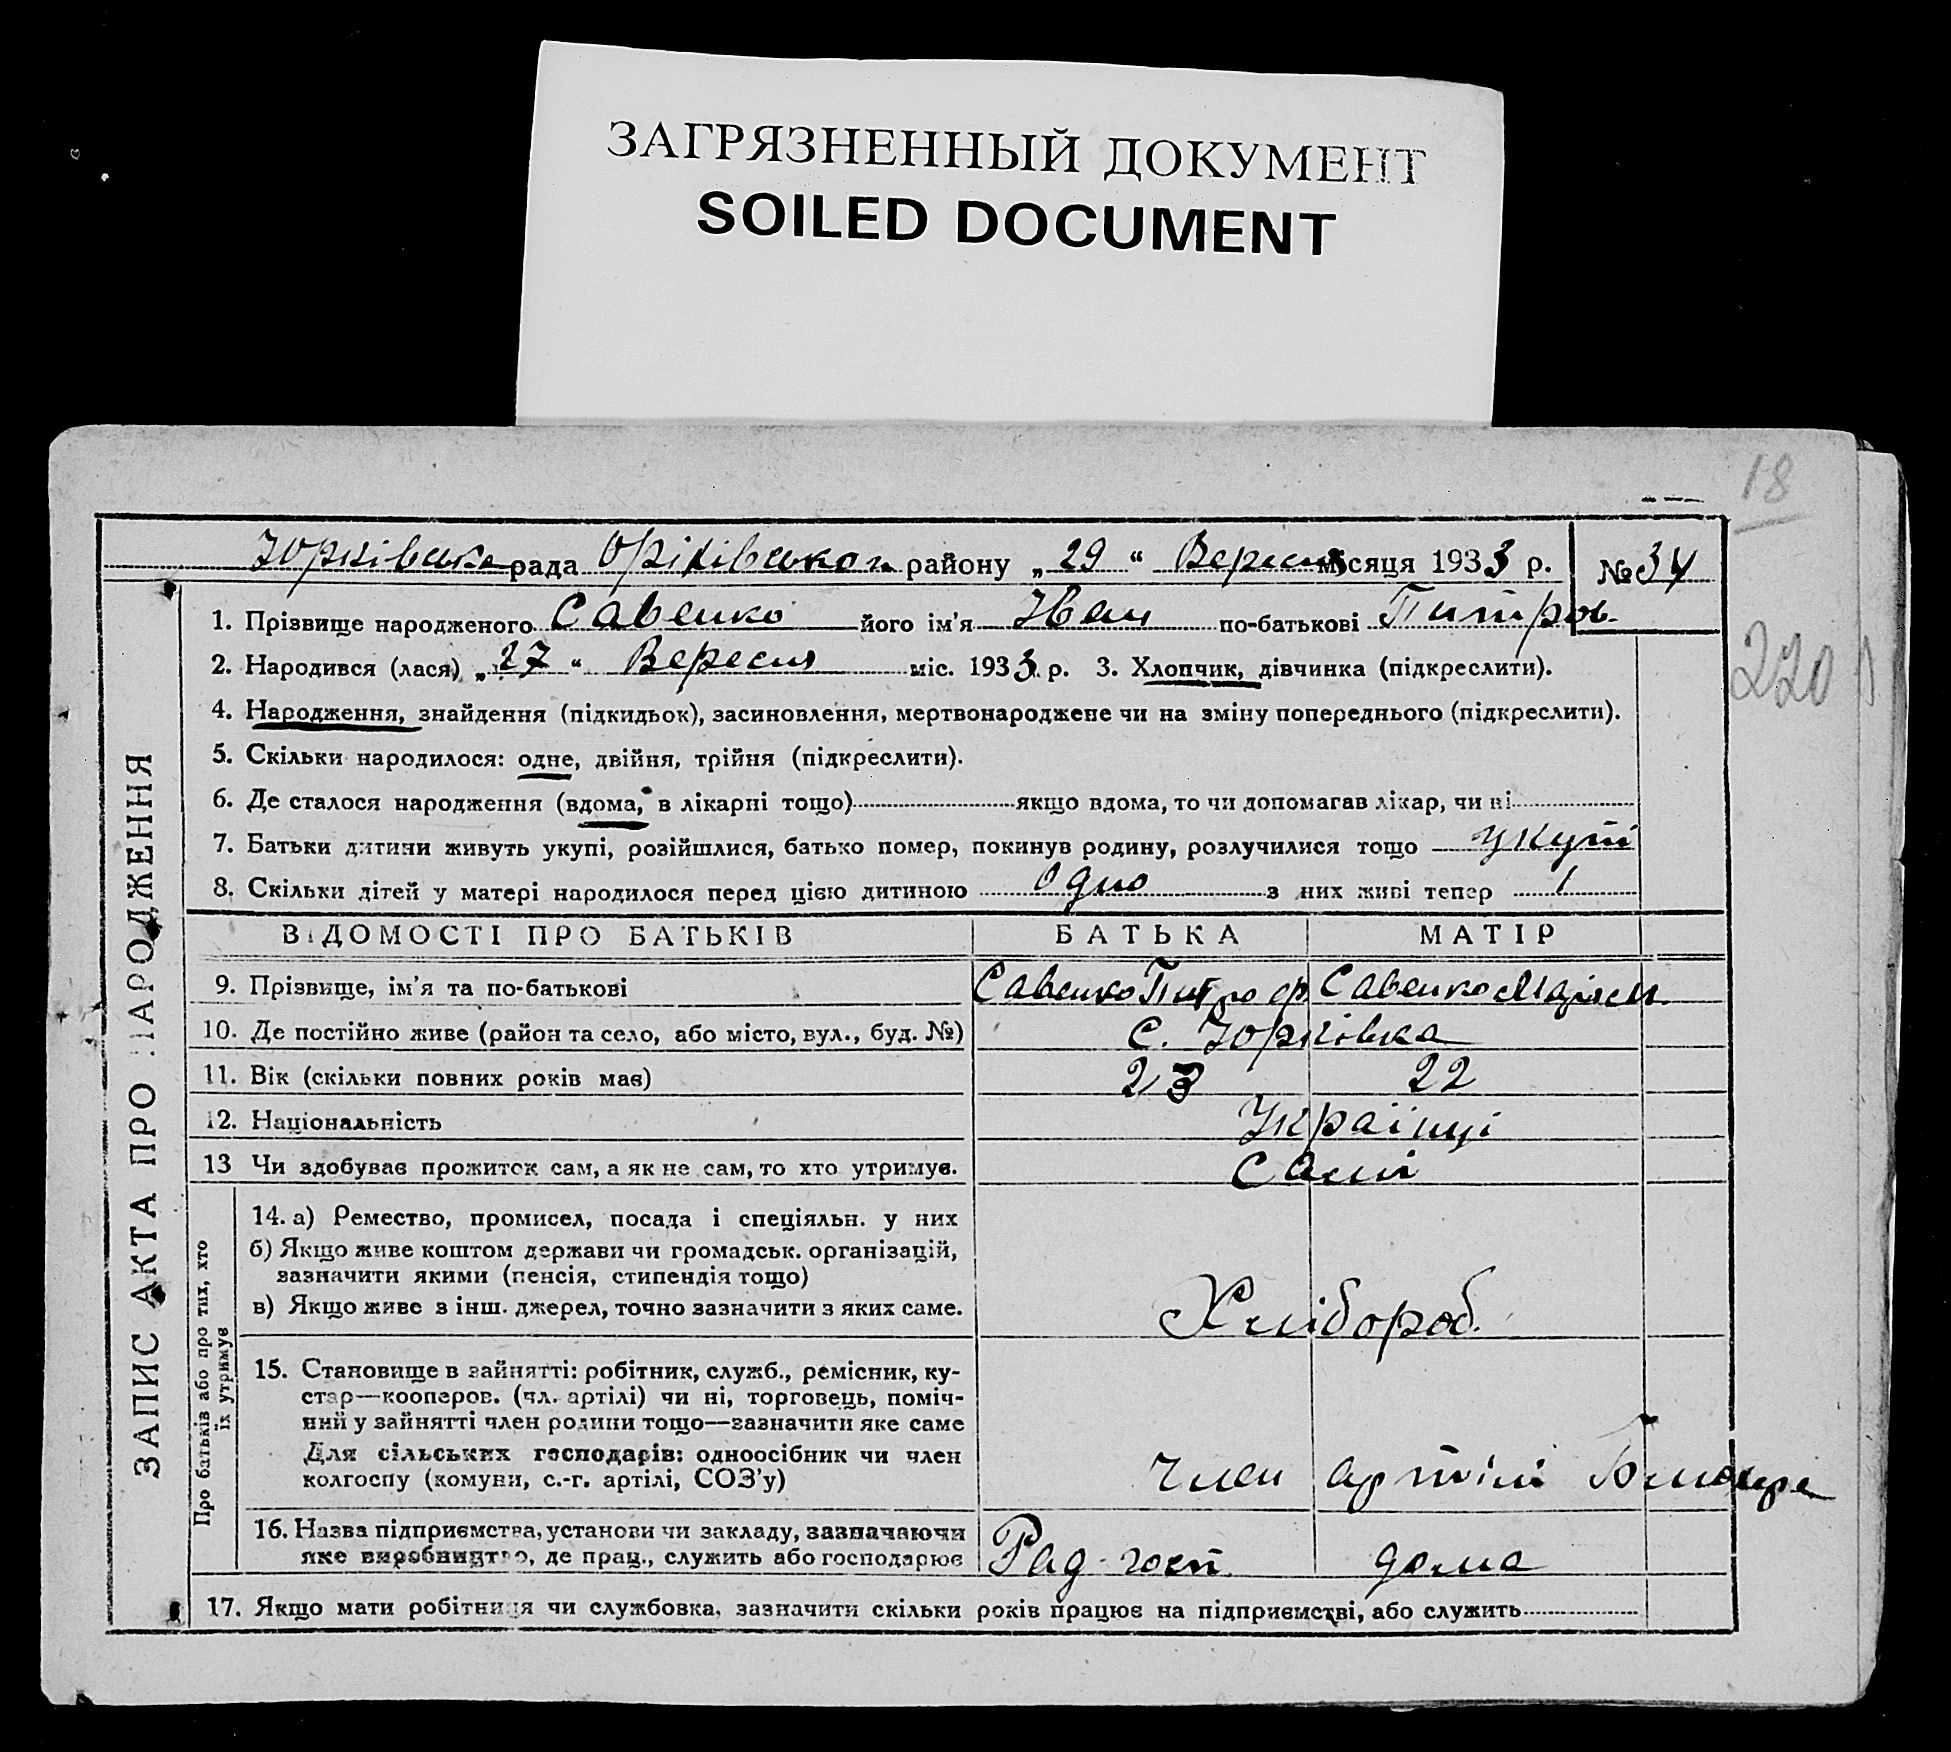 ЗАГРЯЗНЕННЫЙ ДОКУМЕНТ
SOILED DOCUMENT
18
Юрківська рада Оріхівського району „29“ Вересня місяця 1933 р. № 34
1. Прізвище народженого Савенко його ім'я Иван по-батькові Питров.
2. Народився (лася) „27“ Вересня міс. 1933 р. 3. Хлопчик, дівчинка (підкреслити).
220
4. Народження, знайдення (підкидьок), засиновлення, мертвонароджене чи на зміну попереднього (підкреслити).
5. Скільки народилося: одне, двійня, трійня (підкреслити).
6. Де сталося народження (вдома, в лікарні тощо) якщо вдома, то чи допомагав лікар, чи ні
7. Батьки дитини живуть укупі, розійшлися, батько помер, покинув родину, розлучилися тощо укупі
8. Скільки дітей у матері народилося перед цією дитиною Одно з них живі тепер 1
ЗАПИС АКТА ПРО НАРОДЖЕННЯ
ВІДОМОСТІ ПРО БАТЬКІВ БАТЬКА МАТІР
9. Прізвище, ім'я та по-батькові Савенко Питро Савенко Марія
10. Де постійно живе (район та село, або місто, вул., буд. №) С. Юрківка
11. Вік (скільки повних років має) 23 22
12. Національність Українці
13 Чи здобуває прожиток сам, а як не сам, то хто утримує. Самі
Про батьків або про тих, хто їх утримує
14. а) Ремество, промисел, посада і спеціяльн. у них
б) Якщо живе коштом держави чи громадськ. організацій,
зазначити якими (пенсія, стипендія тощо)
в) Якщо живе з інш. джерел, точно зазначити з яких саме. Хлібороб.
15. Становище в зайнятті: робітник, служб., ремісник, ку-
стар—кооперов. (чл. артілі) чи ні, торговець, поміч-
ний у зайнятті член родини тощо—зазначити яке саме
Для сільських господарів: одноосібник чи член
колгоспу (комуни, с.-г. артілі, СОЗ'у) член артілі
16. Назва підприємства, установи чи закладу, зазначаючи
яке виробництво, де прац., служить або господарює Рад-госп дома
17. Якщо мати робітниця чи службовка, зазначити скільки років працює на підприємстві, або служить